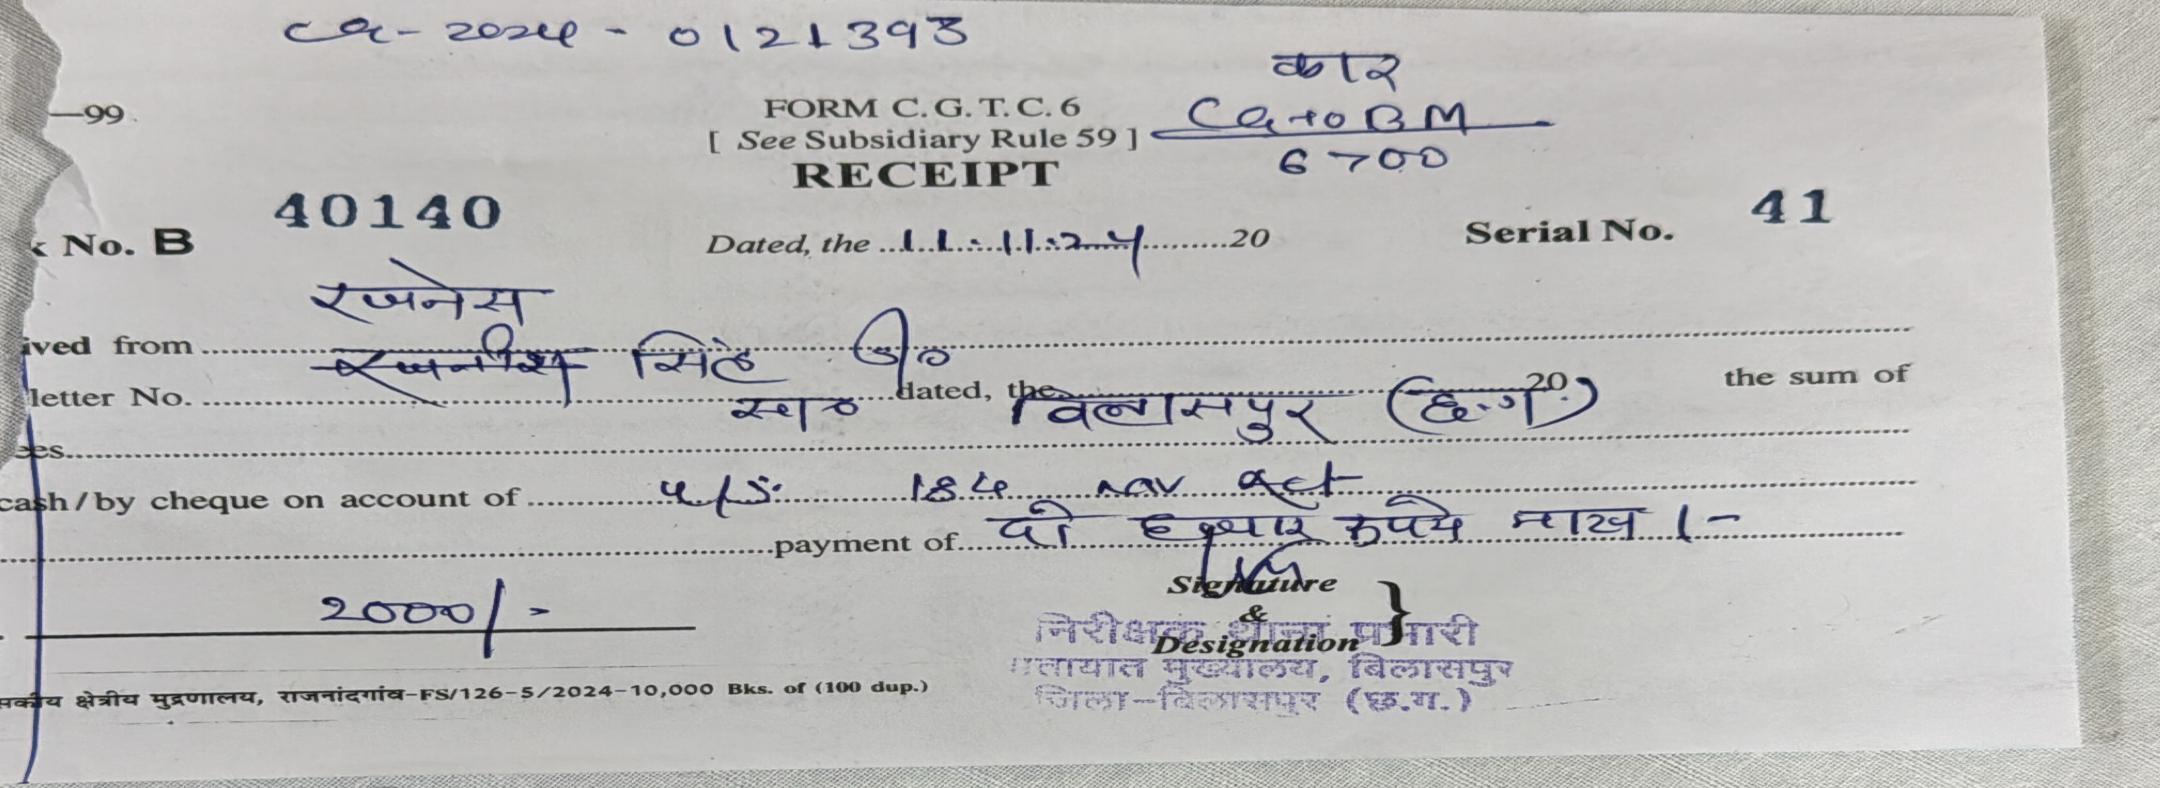 CG-2024-0121393
कार
—99.
FORM C. G. T. C. 6
CG10BM
[ See Subsidiary Rule 59 ]
6700
RECEIPT
40140
41
No. B
Dated, the 11.11.24 20
Serial No.
रजनेस
ived from रजनीश सिंह
letter No. dated, the 20 the sum of
सा० बिलासपुर (छ.ग.)
es
cash / by cheque on account of u/s. 184 mv act
payment of दो हजार रुपये मात्र ।-
Signature
2000/-
&
निरीक्षक थाना प्रभारी
Designation }
यातायात मुख्यालय, बिलासपुर
सकीय क्षेत्रीय मुद्रणालय, राजनांदगांव-FS/126-5/2024-10,000 Bks. of (100 dup.)
जिला-बिलासपुर (छ.ग.)